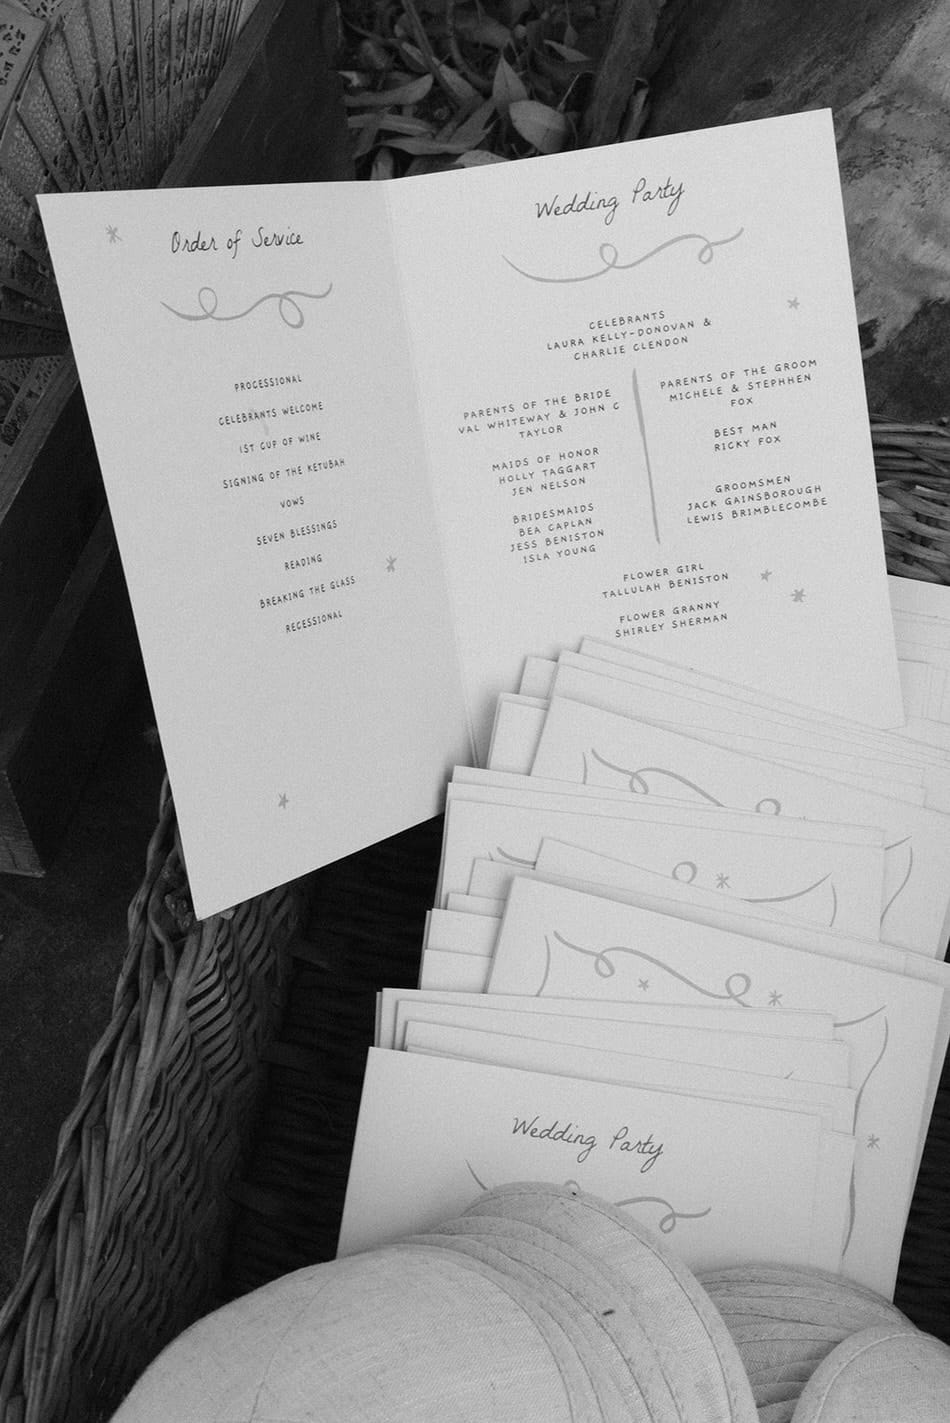 Order of Service
PROCESSIONAL
CELEBRANTS WELCOME
1ST CUP OF WINE
SIGNING OF THE KETUBAH
VOWS
SEVEN BLESSINGS
READING
BREAKING THE GLASS
RECESSIONAL
Wedding Party
CELEBRANTS
LAURA KELLY-DONOVAN &
CHARLIE CLENDON
PARENTS OF THE BRIDE
VAL WHITEWAY & JOHN C
TAYLOR
MAIDS OF HONOR
HOLLY TAGGART
JEN NELSON
BRIDESMAIDS
BEA CAPLAN
JESS BENISTON
ISLA YOUNG
PARENTS OF THE GROOM
MICHELE & STEPHHEN
FOX
BEST MAN
RICKY FOX
GROOMSMEN
JACK GAINSBOROUGH
LEWIS BRIMBLECOMBE
FLOWER GIRL
TALLULAH BENISTON
FLOWER GRANNY
SHIRLEY SHERMAN
Wedding Party